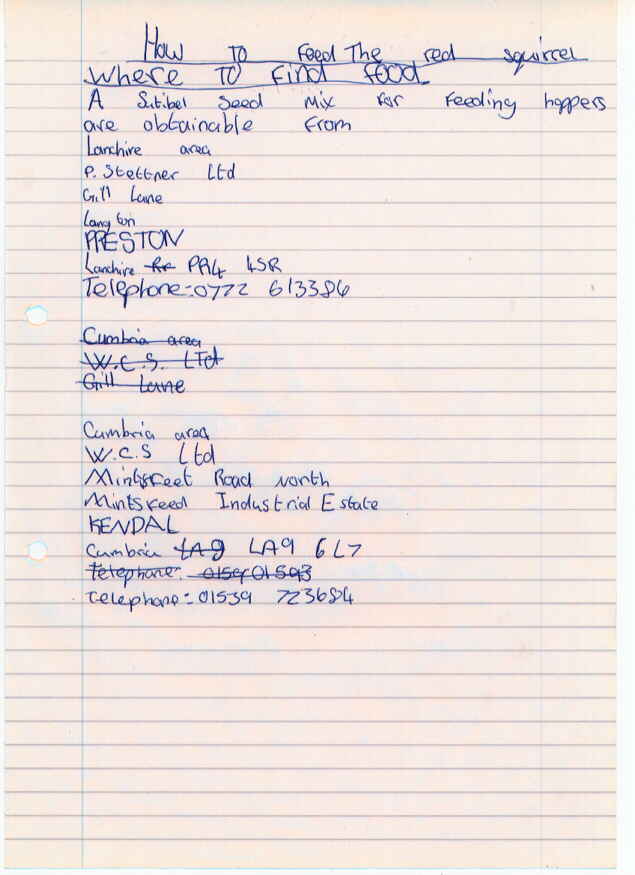 How TO Feed The red squirrel
where TO Find food
A Sutibel Seed mix for Feeding hoppers
are obtainable from
Lanchire area
P. Stettner Ltd
Gill Lane
Langton
PRESTON
Lanchire PR4 4SR
Telephone:-0772 613386
Cumbria area
W.C.S. LTd
Gill Lane
Cumbria area
W.C.S Ltd
Mintsfeet Road north
Mintsfeed Industrial Estate
KENDAL
Cumbria LA9 LA9 6L7
Telephone:
Telephone:-01539 723684